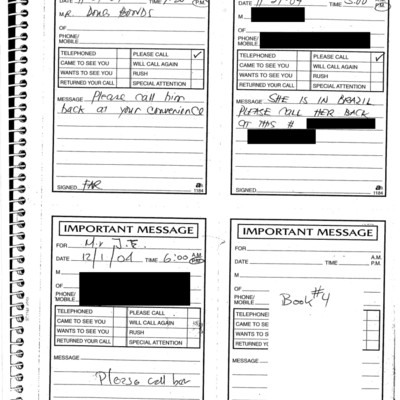 DATE TIME P.M.
MR. DOUG BANDS
OF
PHONE/
MOBILE
TELEPHONED PLEASE CALL ✓
CAME TO SEE YOU WILL CALL AGAIN
WANTS TO SEE YOU RUSH
RETURNED YOUR CALL SPECIAL ATTENTION
MESSAGE Please call him
back at your convenience
SIGNED 1184
DATE 04 TIME 5:00 P.M.
M
OF
PHONE/
MOBILE
TELEPHONED PLEASE CALL ✓
CAME TO SEE YOU WILL CALL AGAIN
WANTS TO SEE YOU RUSH
RETURNED YOUR CALL SPECIAL ATTENTION
MESSAGE SHE IS IN BRAZIL
PLEASE CALL HER BACK
AT THIS #
SIGNED 1184
IMPORTANT MESSAGE
FOR Mr J.E.
DATE 12/1/04 TIME 6:00 A.M.
P.M.
M
OF
PHONE/
MOBILE
TELEPHONED PLEASE CALL
CAME TO SEE YOU WILL CALL AGAIN
WANTS TO SEE YOU RUSH
RETURNED YOUR CALL SPECIAL ATTENTION
MESSAGE
Please call her
IMPORTANT MESSAGE
FOR
DATE TIME A.M.
P.M.
M
OF
PHONE/
MOBILE
Book #4
TELEPHONED
CAME TO S
WANTS TO S
RETURNED Y
MESSAGE